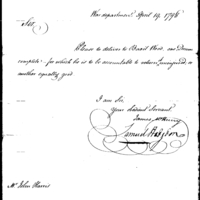 War department April 19. 1796
Sir,
Please to deliver to Brevt West, one Drum
complete – for which he is to be accountable to return unimpaired, or
another equally good
I am Sir,
Your obedient Servant
James McHenry
Samuel Hodgdon
Mr John Harris